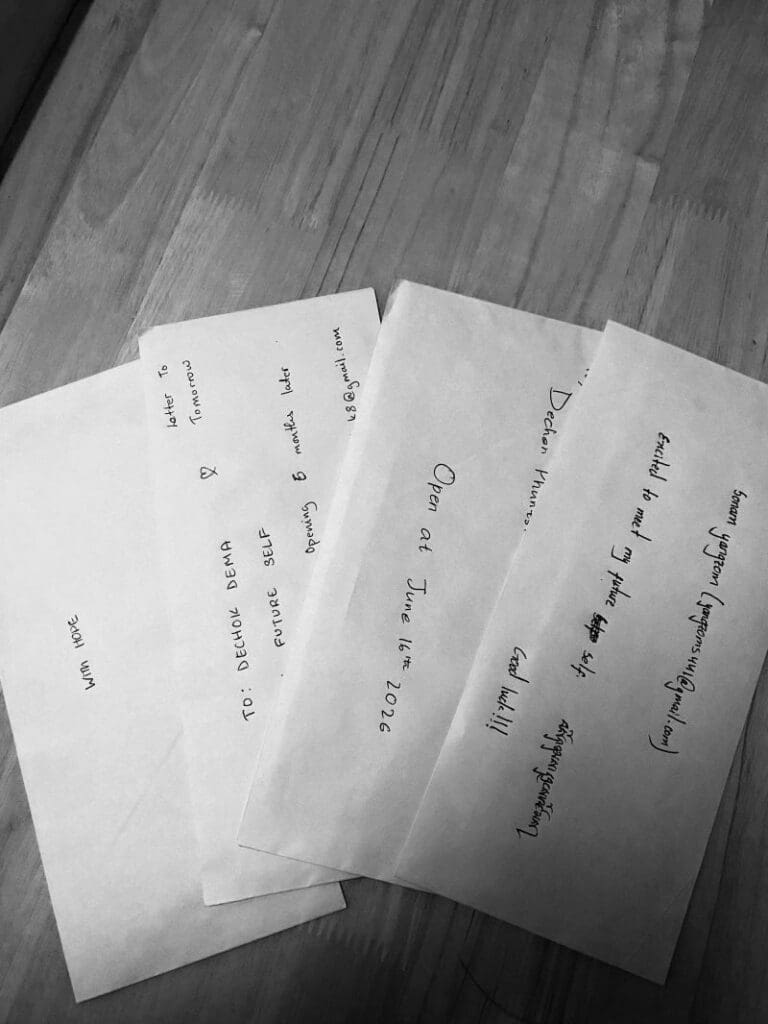 With HOPE
Letter To
Tomorrow
TO: DECHOK DEMA
FUTURE SELF
Opening 6 months later
k8@gmail.com
Dechen
Open at June 16th 2026
Sonam Yangzom (yangzoms441@gmail.com)
Excited to meet my future self.
Good luck!!!